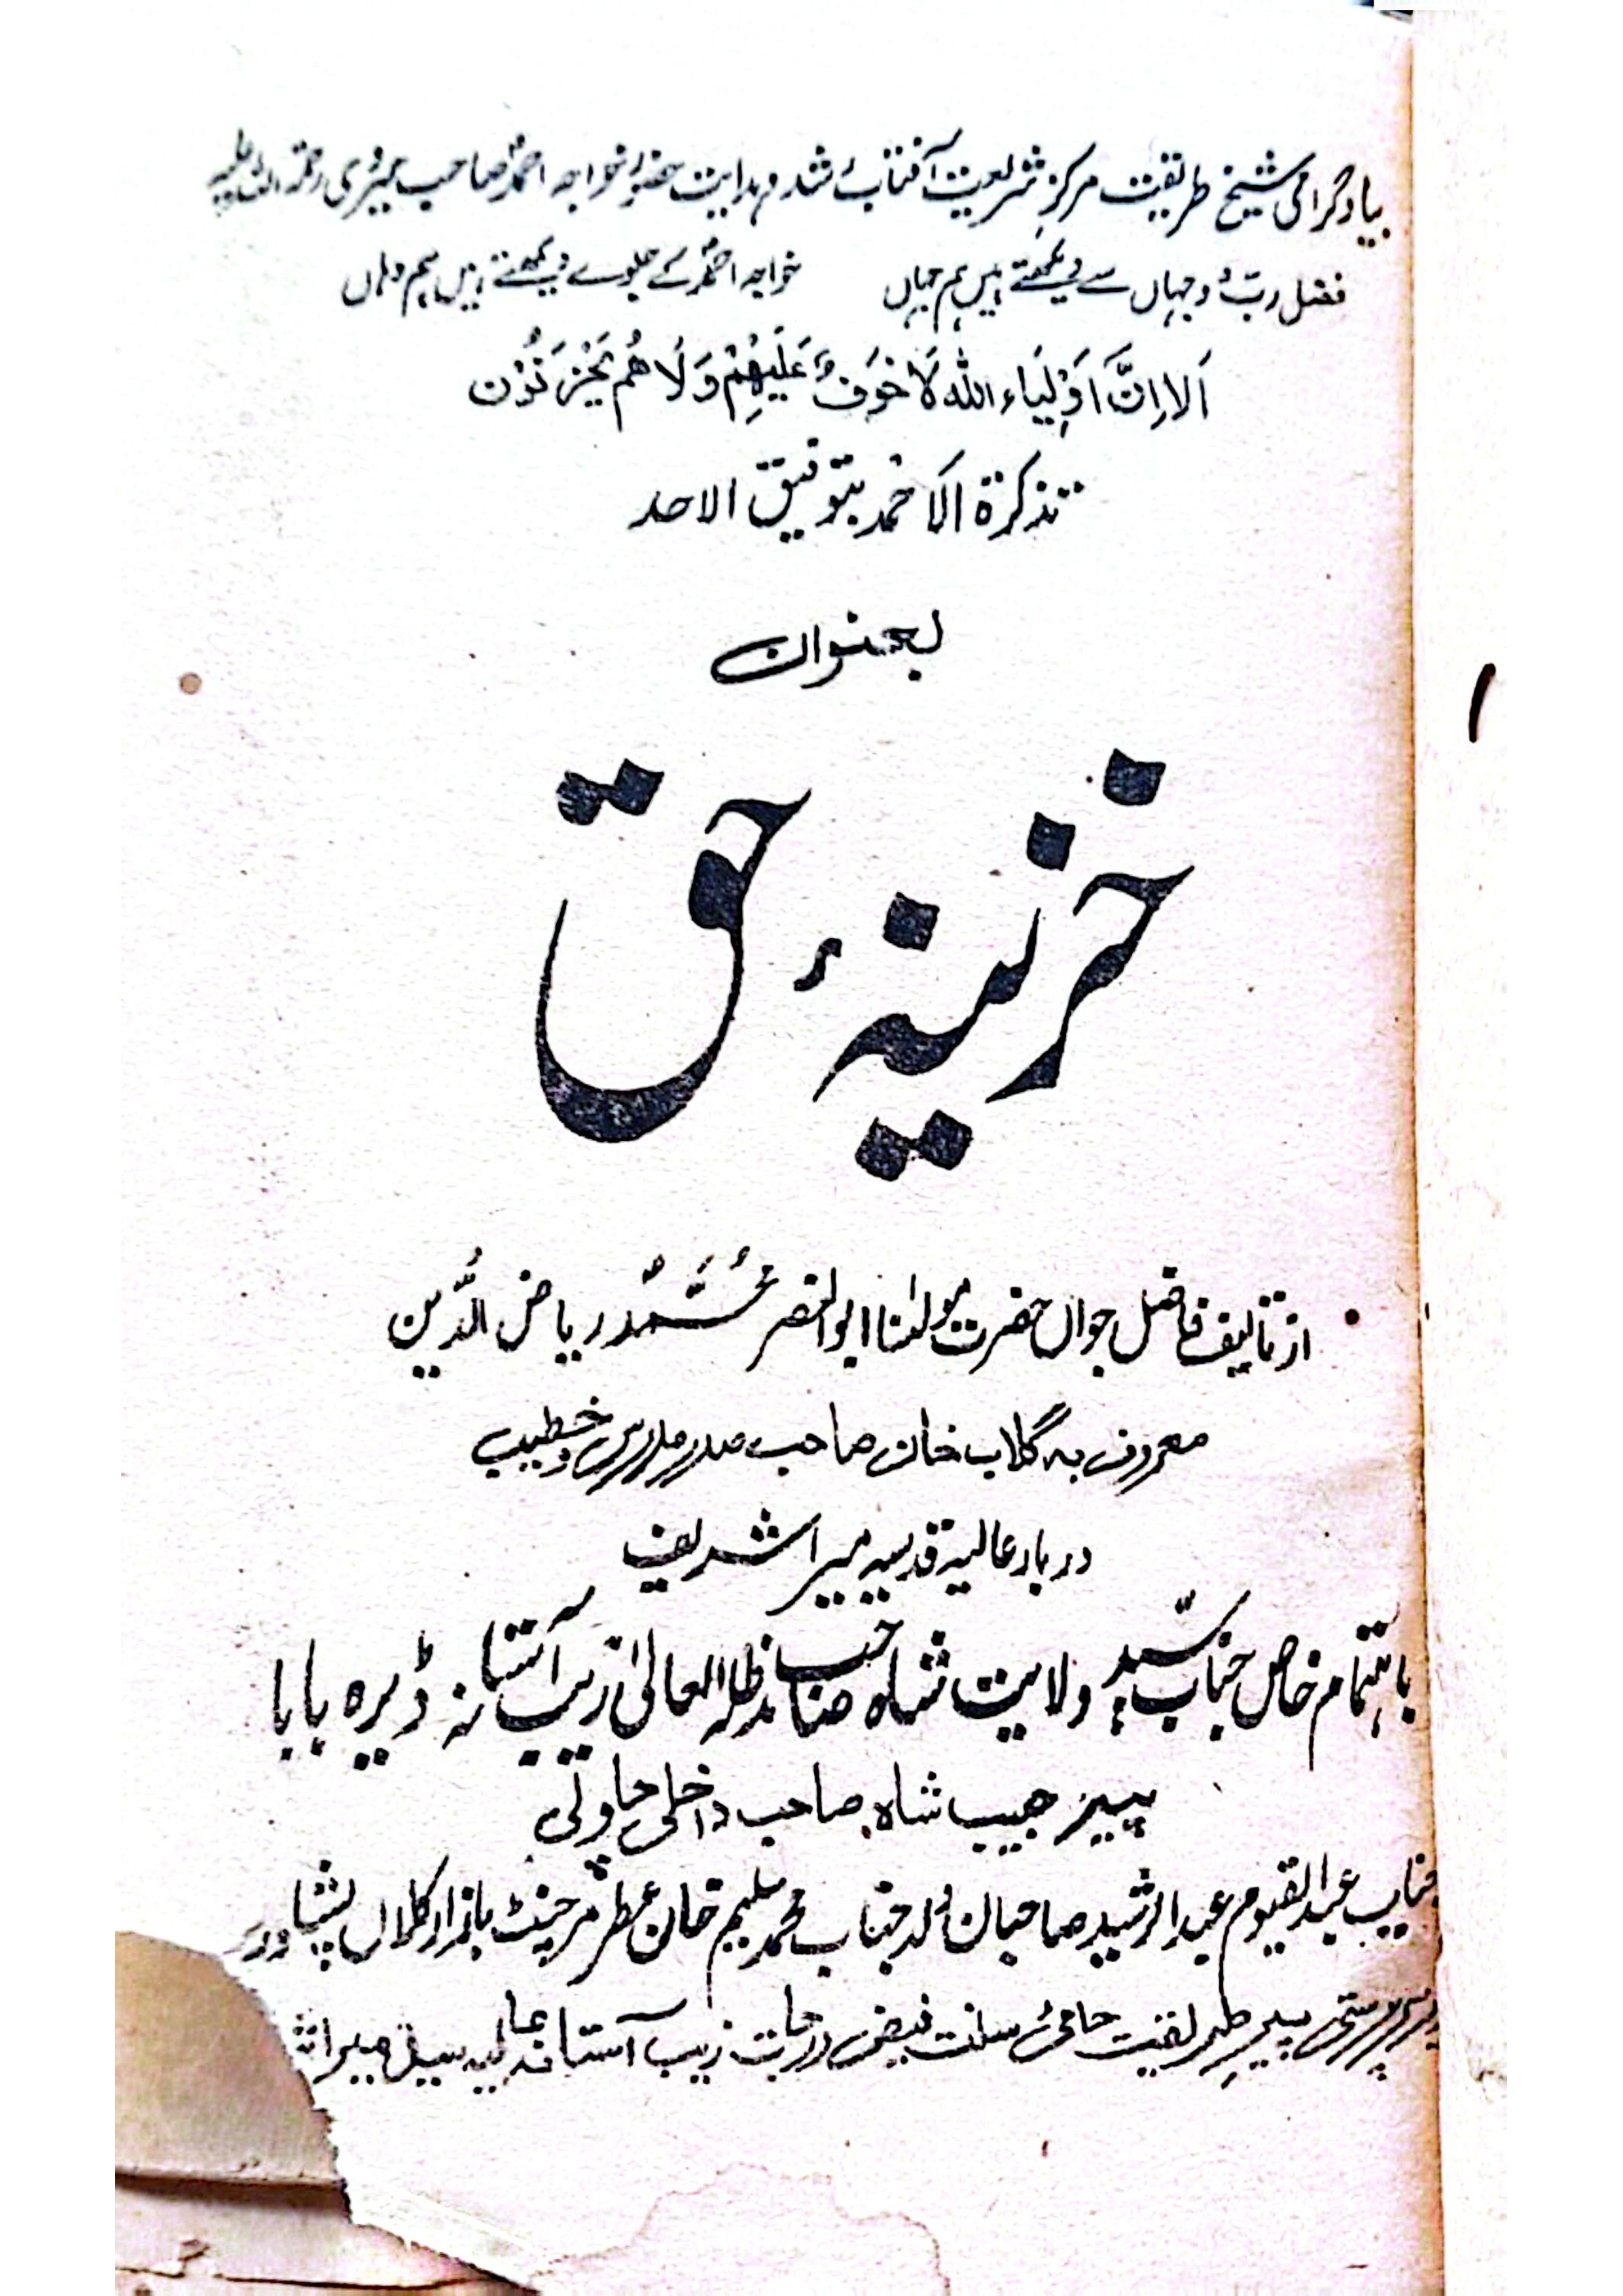 بیاد گرامی شیخ طریقت مرکز شریعت آفتاب رشد و ہدایت حضور خواجہ احمد صاحب میروی رحمۃ اللہ علیہ
فضل ربّ دو جہاں سے دیکھتے ہیں ہم جہاں خواجہ احمدؒ کے جلوے دیکھتے ہیں ہم وہاں
اَلا اِنَّ اَوْلِیَاء اللّٰہ لَا خَوفٌ عَلَیْہِمْ وَلَا ھُم یَحْزَنُوْن
تذکرۃ الاحمد بتوفیق الاحد
بعنوان
خزینۂ حق
۱
از تالیف فاضل جواں حضرت مولٰنا ابوالنصر مُحَمَّد ریاض الدِّین
معروف بہ گلاب خان صاحب صدر مدرس و خطیب
دربار عالیہ قدسیہ میرا شریف
باہتمام خاص جناب سیّد پیر ولایت شاہ صاحب مدظلہ العالی زیب آستانہ ڈیرہ بابا
پیر حبیب شاہ صاحب داخلی چاولی
جناب عبد القیوم عبد الرشید صاحبان ولد جناب محمد سلیم خان عطر مرچنٹ بازار کلاں پشاور
سرپرستی پیر طریقت حامئ سنت فیض درجات زیب آستانہ عالیہ میرا